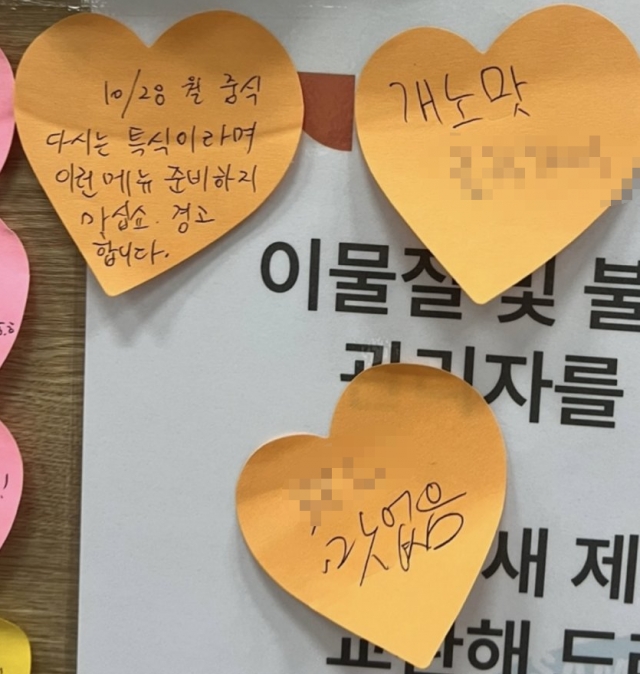 10/28 월 중식
다시는 특식이라며
이런메뉴 준비하지
마십쇼. 경고
합니다.
개노맛
이물질 및 불
관리자를
맛없음
새 제
교환해 드리